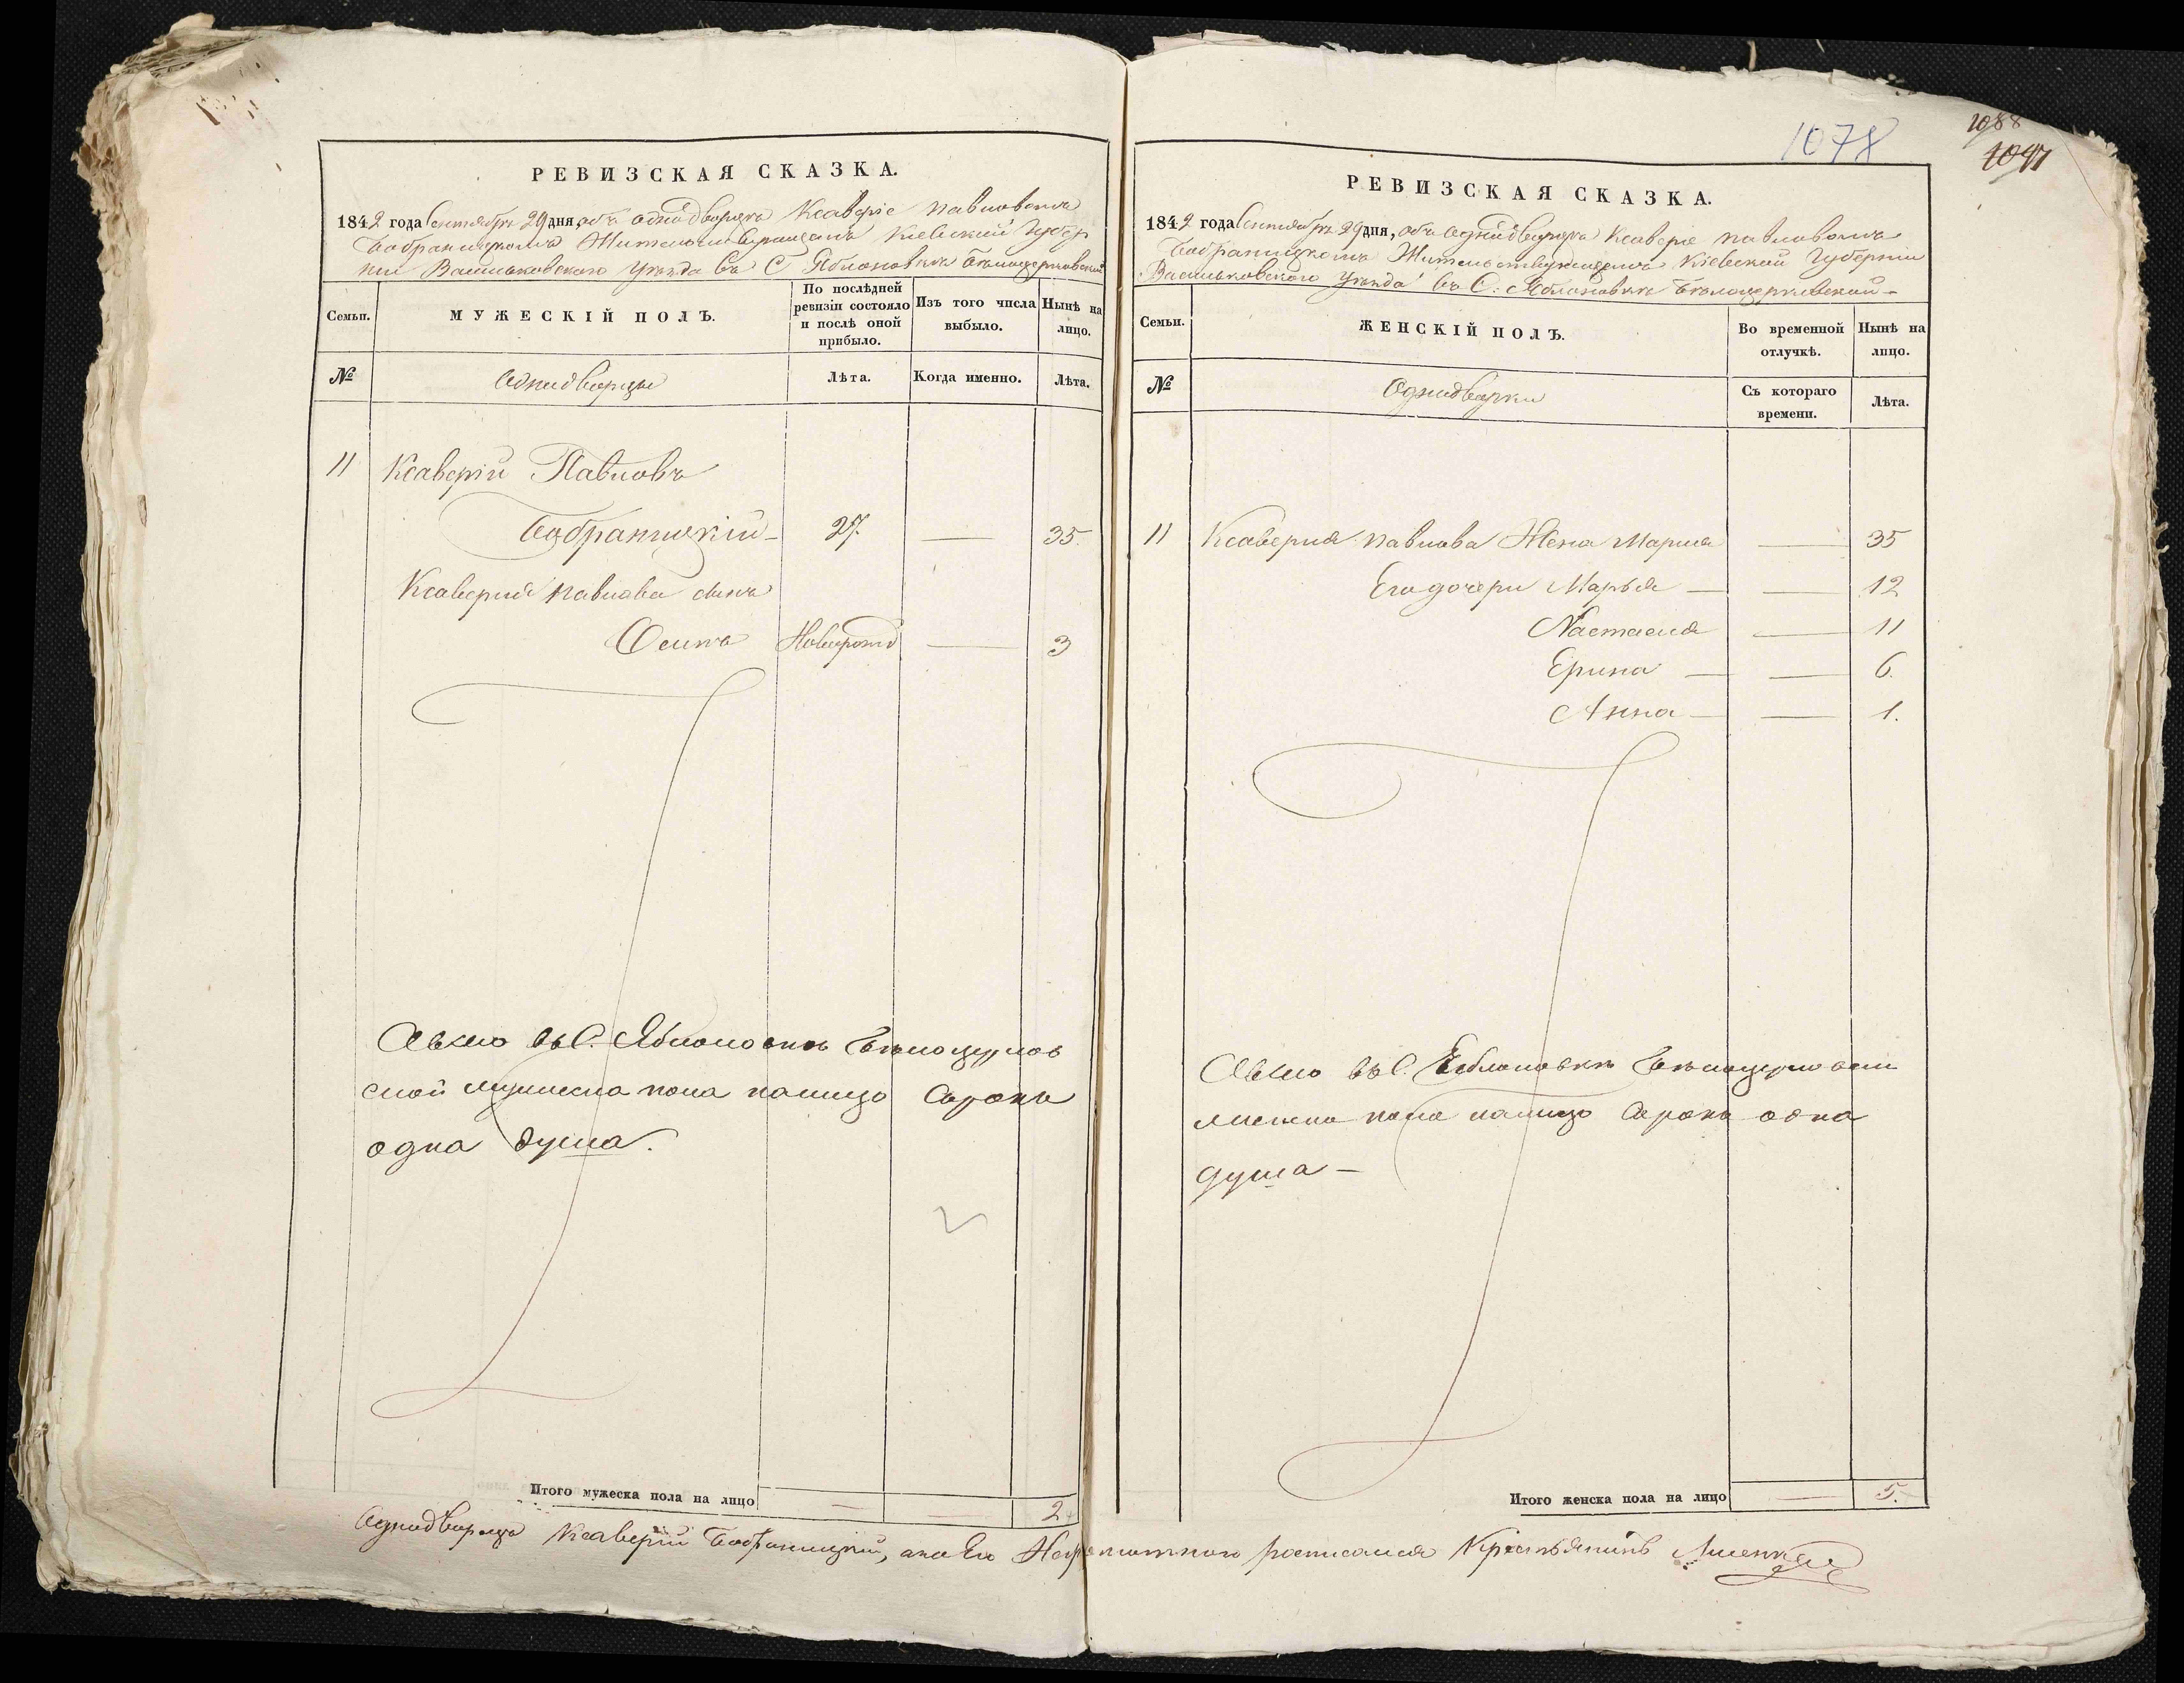 РЕВИЗСКАЯ СКАЗКА.
1842 года Сентября 29 дня, объ однодворце Ксаверіе Павловомъ
Бобраницкомъ Жительствующемъ Кіевской Губер
ніи Васильковского уѣзда въ С Яблоновкѣ Бѣлоцерковской
Семьи.
МУЖЕСКІЙ ПОЛЪ.
По послѣдней ревизіи состояло и послѣ оной прибыло.
Изъ того числа выбыло.
Нынѣ на лицо.
№
Однодворцы
Лѣта.
Когда именно.
Лѣта.
11 Ксаверій Павловъ
Бобраницкій 27. — 35.
Ксаверия Павлова сынъ
Осипъ Новорожд — 3
Всего въ С. Яблоновкѣ Бѣлоцерков
ской мужеска пола налицо Сорокъ
одна душа.
Итого мужеска пола на лицо — — 2
РЕВИЗСКАЯ СКАЗКА.
1078
1088
1842 года Сентября 29 дня, объ однодворце Ксаверіе Павловомъ
Бобраницкомъ Жительствующемъ Кіевской Губерніи
Васильковского уѣзда въ С. Яблоновкѣ Бѣлоцерковской —
Семьи.
ЖЕНСКІЙ ПОЛЪ.
Во временной отлучкѣ.
Нынѣ на лицо.
№
Однодворки
Съ котораго времени.
Лѣта.
11 Ксаверия Павлова Жена Мария — 35
Его дочери Марья — — 12
Настасия — 11
Ерина — — 6.
Анна — — 1.
Всего въ С. Яблоновкѣ
женска пола налицо Сорокъ одна
душа —
Итого женска пола на лицо — 5.
Однодворецъ Ксаверій Бобраницкій, а по Его Неграмотного росписался Крестьянинъ